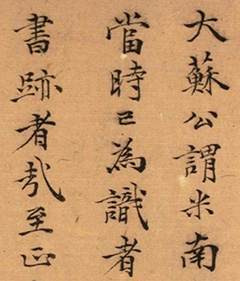 大蘇公謂米南
當時已為識者
書跡者哉至正